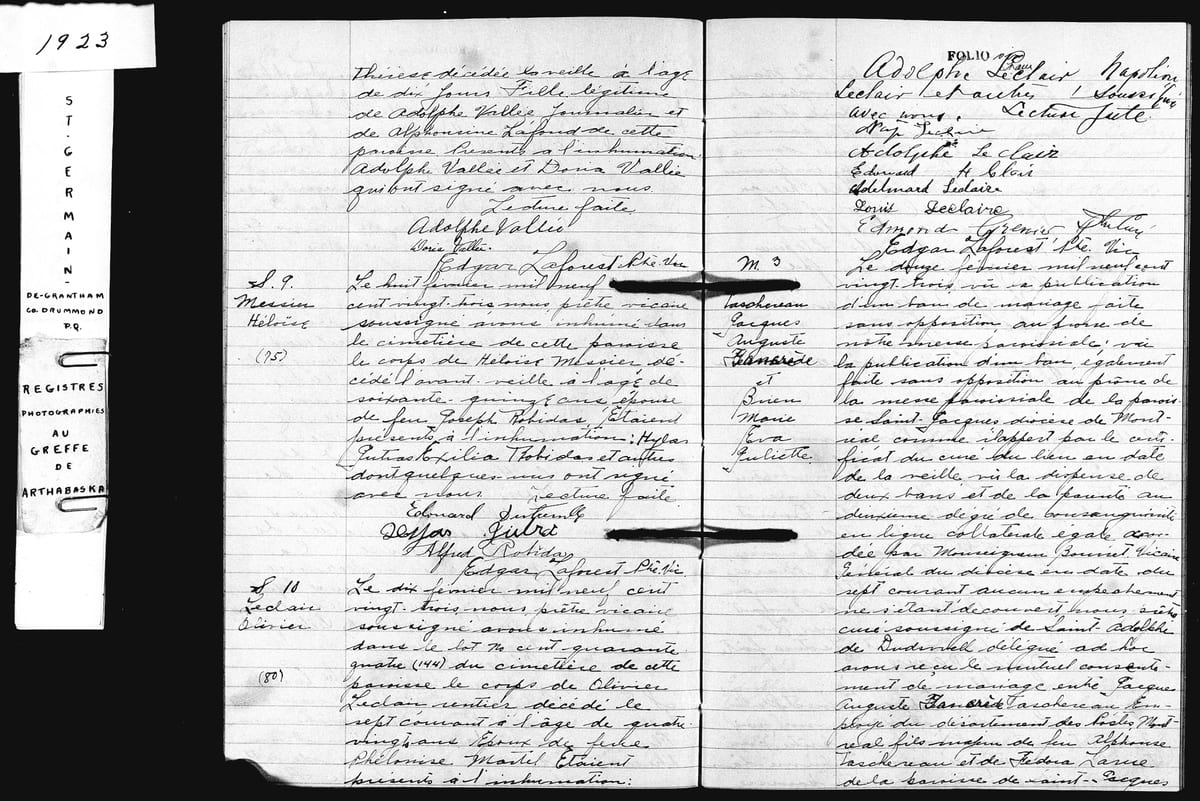 1923
ST. GERMAIN-
DE-GRANTHAM
CO. DRUMMOND
P.Q.
REGISTRES
PHOTOGRAPHIÉS
AU
GREFFE
DE
ARTHABASKA
Thérèse décédée la veille à l'âge
de dix jours Fille légitime
de Adolphe Vallée Journalier et
de Alphonsine Lafond de cette
paroisse Présents a l'inhumation
Adolphe Vallée et Doria Vallée
qui ont signé avec nous
Lecture faite
Adolphe Vallée
Doria Vallée
Edgar Laforest Ptre. Vic
S. 9
Messier
Héloïse
(75)
Le huit février mil neuf
cent vingt-trois nous prêtre vicaire
soussigné avons inhumé dans
le cimetière de cette paroisse
le corps de Héloïse Messier dé-
cédé l'avant-veille à l'âge de
soixante-quinze ans épouse
de feu Joseph Robidas, Étaient
présents à l'inhumation: Hylas
Jutras Exilia Robidas et autres
dont quelques-uns ont signé
avec nous Lecture faite
Edouard
Alfred Robidas
Edgar Laforest Ptre. Vic.
S. 10
Leclair
Olivier
(80)
Le dix février mil neuf cent
vingt-trois nous prêtre vicaire
soussigné avons inhumé
dans le lot No cent quarante
quatre (144) du cimetière de cette
paroisse le corps de Olivier
Leclair rentier décédé le
sept courant à l'âge de quatre
vingt ans Epoux de feue
Philomise Martel Etaient
présents à l'inhumation:
FOLIO
Adolphe Leclair Napoléon
Leclair et autres soussignés
avec nous. Lecture faite
Nap Leclaire
Adolphe Leclair
Edouard
Adelmard Leclaire
Louis Leclaire
Edmond Grenier
Edgar Laforest Ptre. Vic
M. 3
Taschereau
Jacques
Auguste
Tancrède
et
Brien
Marie
Eva
Juliette
Le douze février mil neuf cent
vingt trois, vu la publication
d'un ban de mariage faite
sans opposition au prône de
notre messe paroissiale; vu
la publication d'un ban, également
faite sans opposition au prône de
la messe paroissiale de la parois-
se Saint-Jacques diocèse de Mont-
réal comme il appert par le certi-
ficat du curé du lieu en date
de la veille vu la dispense de
deux bans et de la parenté au
deuxième degré de consanguinité
en ligne collatérale égale accor-
dée par Monseigneur Vicaire
Général du diocèse en date du
sept courant aucun empêchement
ne s'étant découvert, nous prêtre
curé soussigné de Saint Adolphe
de Dudswell délégué ad hoc
avons reçu le mutuel consente-
ment de mariage entre Jacques
Auguste Tancrède Taschereau Em-
ployé du département des Postes Mont-
réal fils majeur de feu Alphonse
Taschereau et de Fedora Larue
de la paroisse de Saint-Jacques